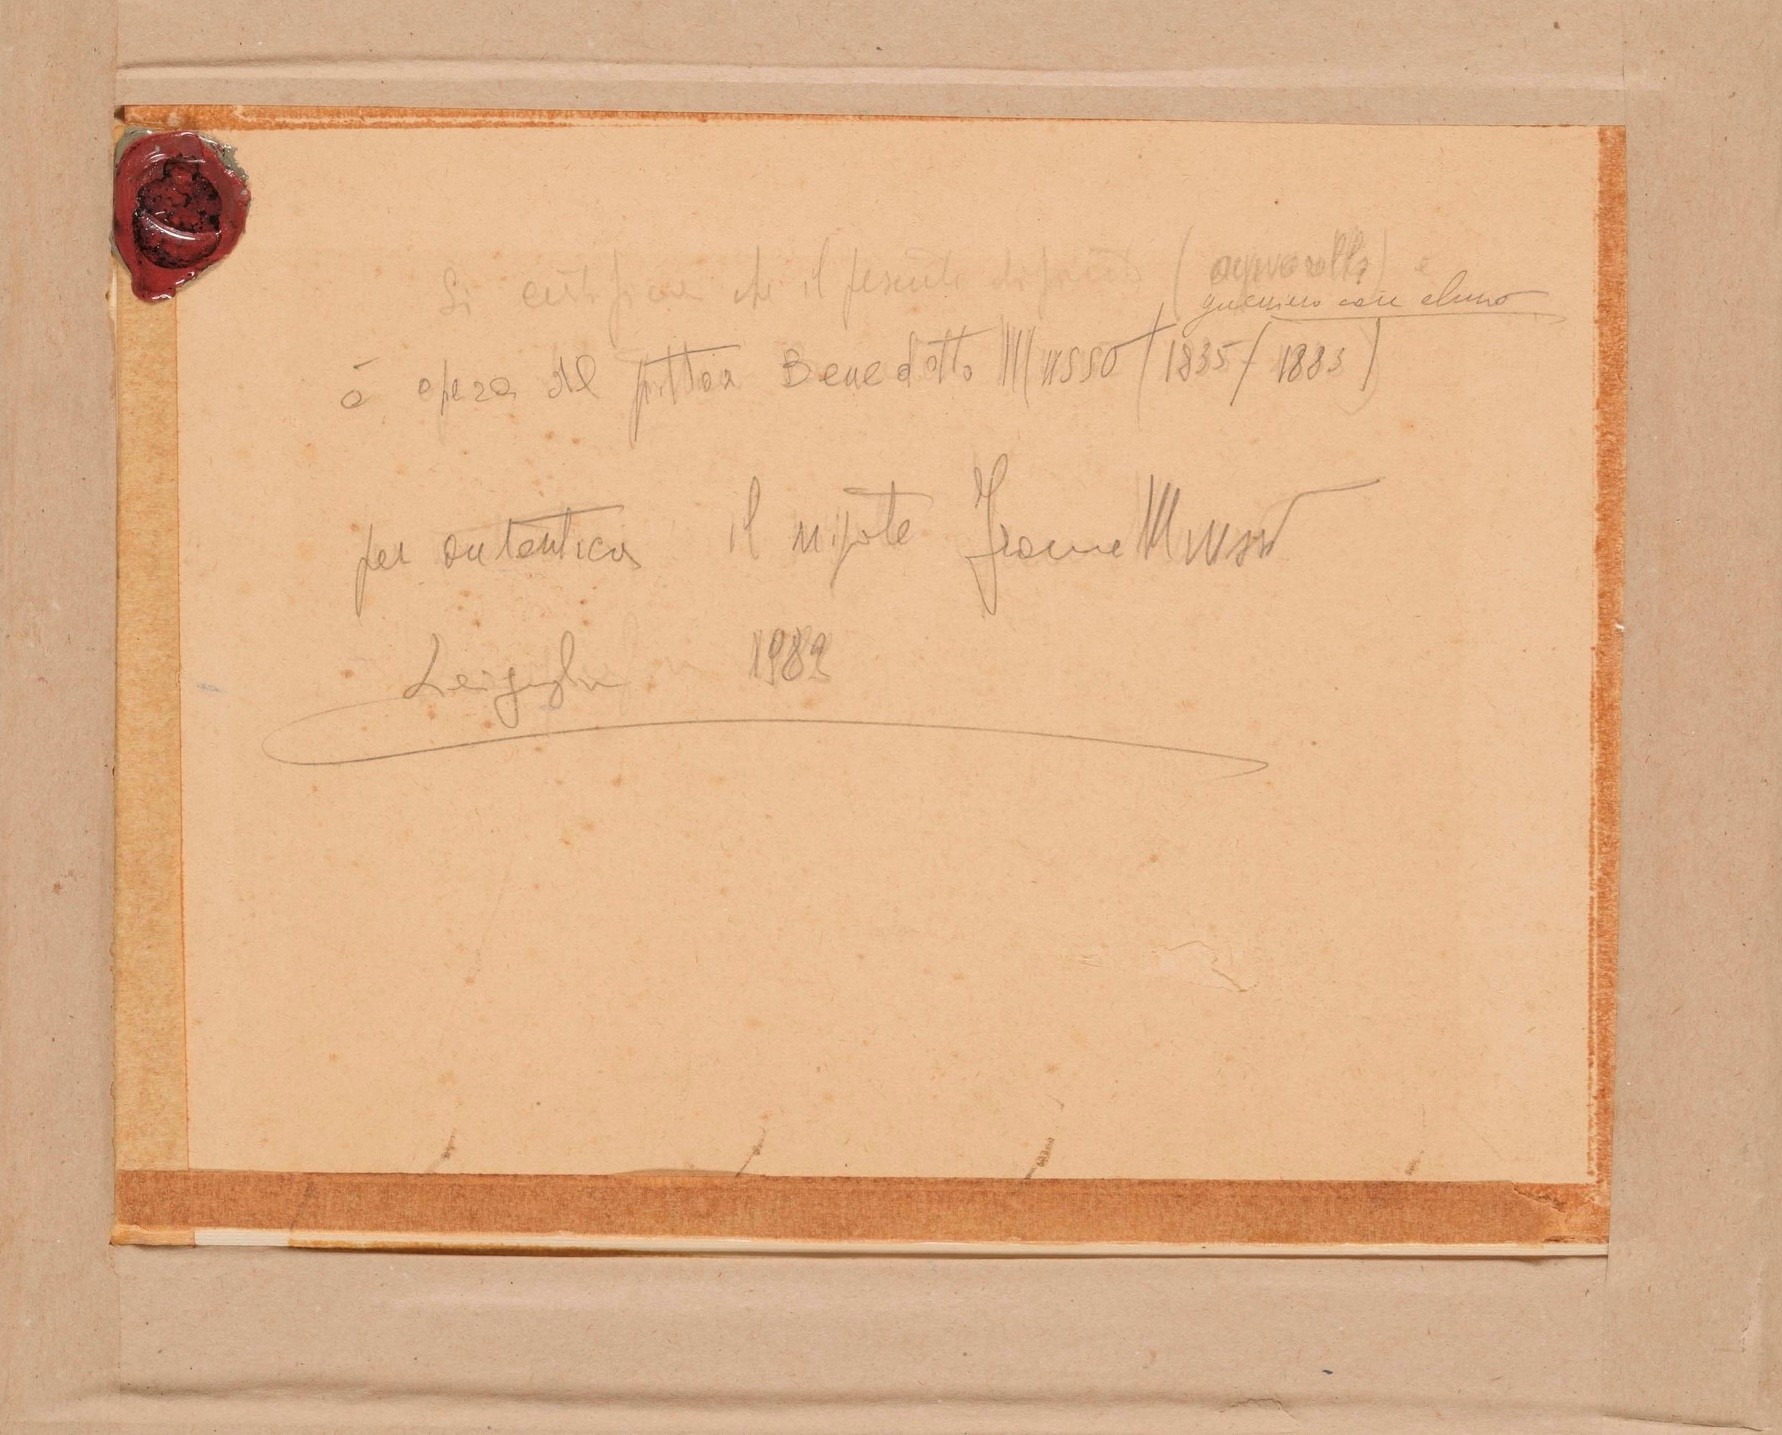 Si certifica che il presente dipinto (acquarello) è
guerriero con elmo
è opera del pittor Benedetto Musso (1835/1883)
per autentica il nipote Musso
Laigueglia 1982